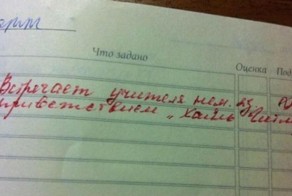 Что задано Оценка Под
Встречает учителя нем. яз
приветствием „Хайль Гитл